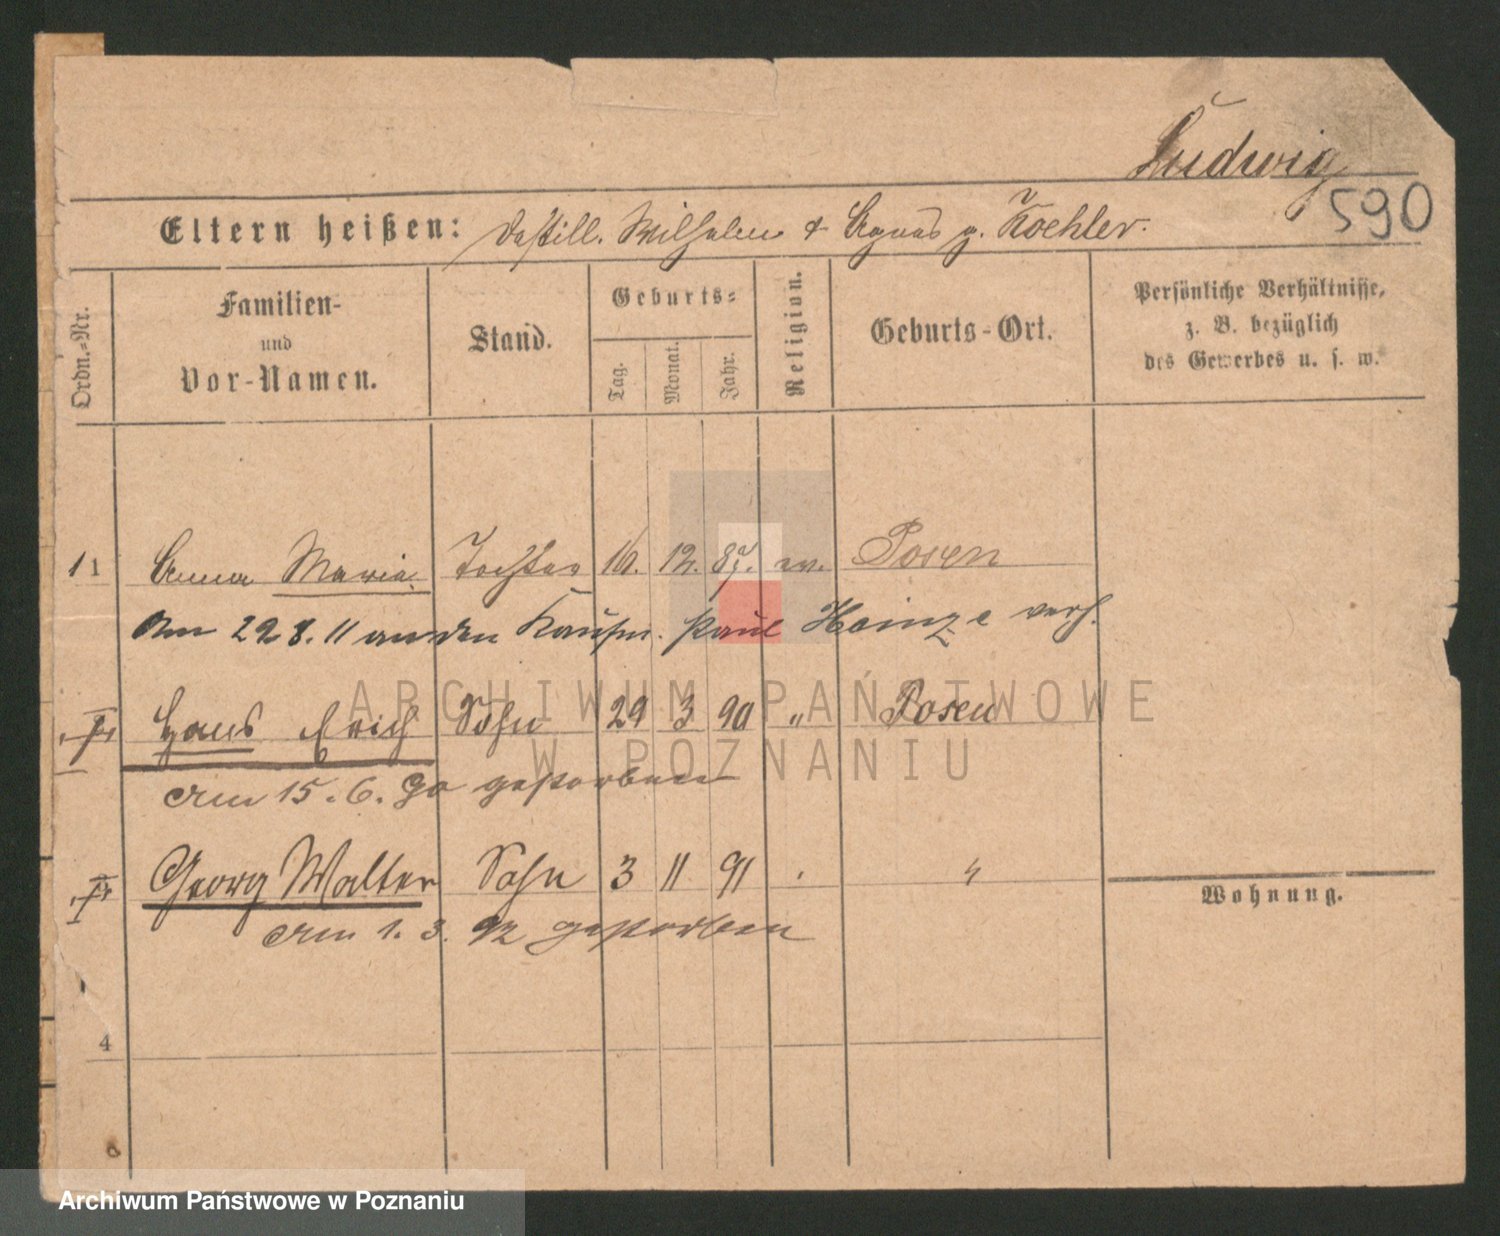 Ludwig
590
Eltern heißen: Destill. Wilhelm & Agnes g. Koehler.
Ordn.-Nr.
Familien- und Vor-Namen.
Stand.
Geburts-
Tag.
Monat.
Jahr.
Religion.
Geburts-Ort.
Persönliche Verhältnisse,
z. B. bezüglich
des Gewerbes u. s. w.
1 Anna Marie Tochter 16. 12. 87. ev. Posen
Am 29 8. 11 an den Kaufm. Paul Heinze verh.
Hans Erich Sohn 29 3 90 " Posen
am 15. 6. 90 gestorben
Georg Walter Sohn 3 11 91 "
am 1. 3. 92 gestorben
Wohnung.
4
ARCHIWUM PAŃSTWOWE
W POZNANIU
Archiwum Państwowe w Poznaniu